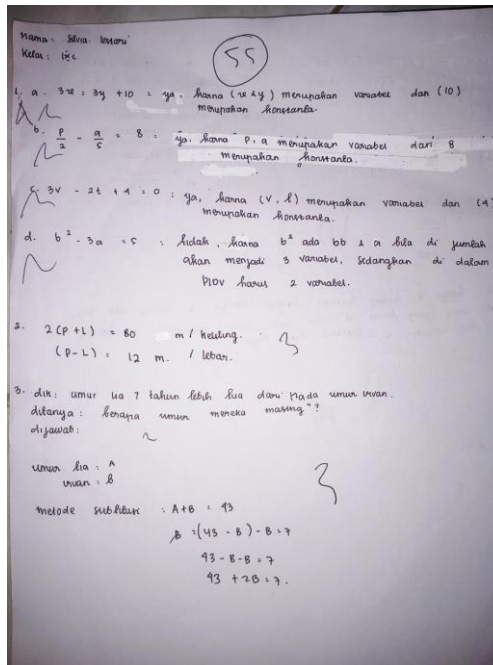 nama : Silvia lestari
Kelas : IX C
55
1. a. 3x = 3y + 10 = ya, karna (x & y) merupakan variabel dan (10)
merupakan konstanta.
b. p/2 - q/5 = 8 = ya, karna p, q merupakan variabel dari 8
merupakan konstanta.
c. 3v - 2t + 4 = 0 : ya, karna (v, t) merupakan variabel dan (4)
merupakan konstanta.
d. b² - 3a = 5 : tidak, karna b² ada bb & a bila di jumlah
akan menjadi 3 variabel, sedangkan di dalam
PLDV harus 2 variabel.
2. 2(P+L) = 80 m / keliling.
(P-L) = 12 m. / lebar.
3
3. dik : umur lia 7 tahun lebih tua dari pada umur irvan.
ditanya : berapa umur mereka masing"?
dijawab :
umur lia : A
irvan : B
3
metode subtitusi : A+B = 43
B = (43 - B) - B = 7
43 - B - B = 7
43 + 2B = 7.